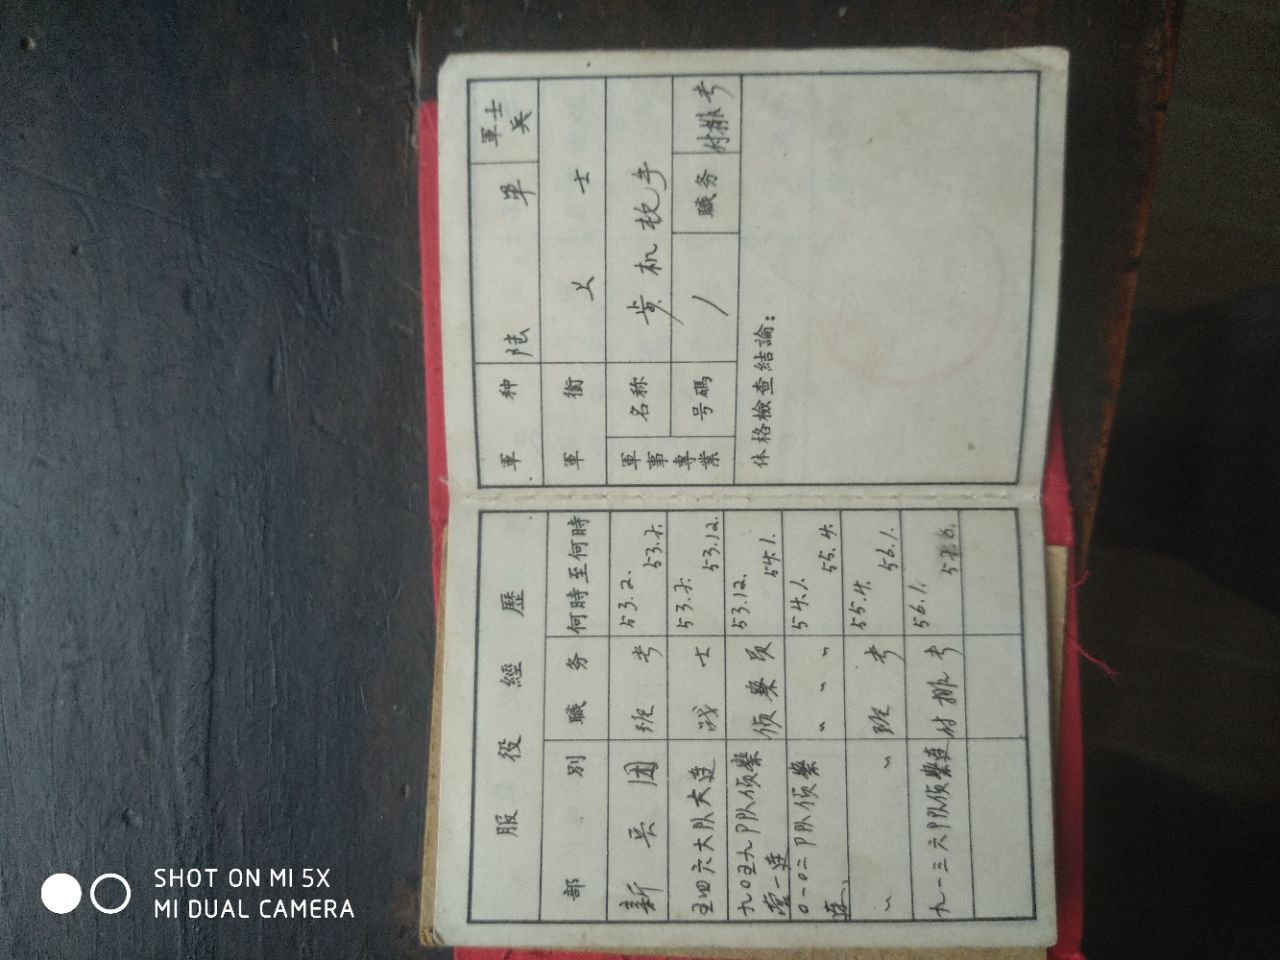 服役經歷
部別 職務 何時至何時
新兵团 班长 53.2. 53.5.
五四六大队六连 战士 53.5. 53.12.
九〇五九部队侦察 侦察员 53.12. 54.1.
营一连
〇一〇二部队侦察 〃 〃 54.1. 55.4.
连.
〃 〃 班长 55.4. 56.1.
九一三六部队侦察连 付排长 56.1.
軍种 陆军 軍士兵
軍銜 上士
軍事專業 名称 步机枪手
号碼 / 職务 付排长
体格檢查結論:
SHOT ON MI 5X
MI DUAL CAMERA